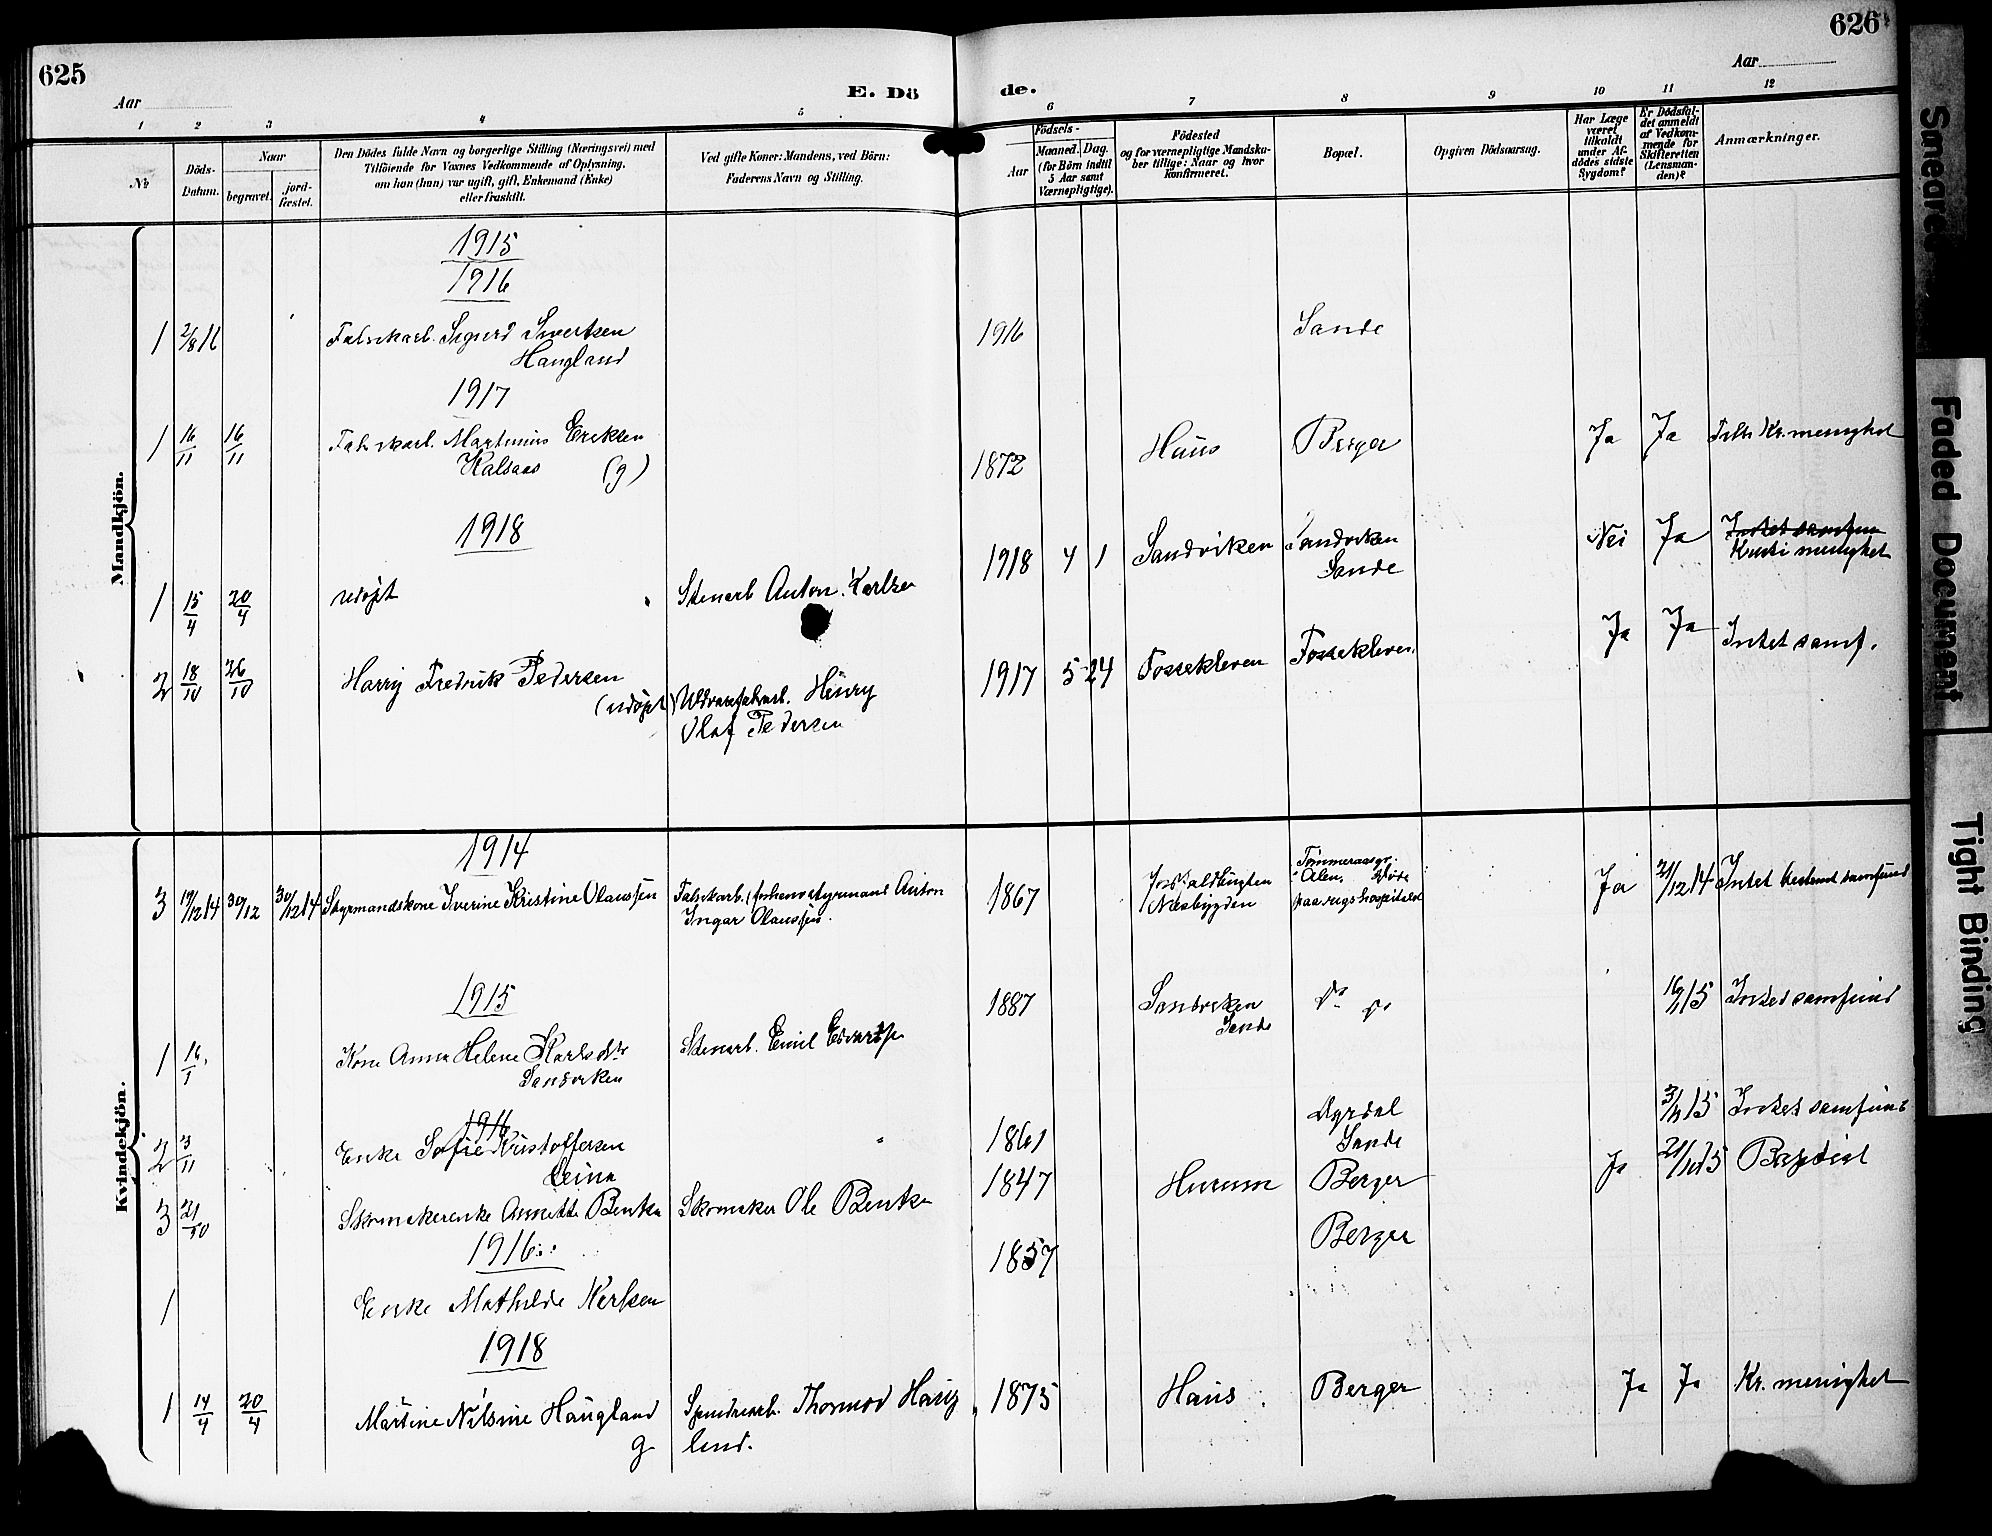 625
626
Aar
E. Dö
de.
Aar
1 2 3 4 5 6 7 8 9 10 11 12
Nr
Döds-
Datum.
Naar
begravet.
jord-
fæstet.
Den Dödes fulde Navn og borgerlige Stilling (Næringsvei) med
Tilföiende for Voxnes Vedkommende af Oplysning,
om han (hun) var ugift, gift, Enkemand (Enke)
eller fraskilt.
Ved gifte Koner: Mandens, ved Börn:
Faderens Navn og Stilling.
Födsels-
Aar
Maaned. Dag.
(for Börn indtil
5 Aar samt
Værnepligtige).
Födested
og for værnepligtige Mandska-
ber tillige: Naar og hvor
konfirmeret.
Bopæl.
Opgiven Dödsaarsag.
Har Læge
været
tilkaldt
under Af-
dödes sidste
Sygdom?
Er Dödsfal-
det anmeldt
af Vedkom-
mende for
Skifteretten
(Lensman-
den)?
Anmærkninger.
Mandkjön.
1915
1916
1 2/8 16 Fabrikarb. Sigurd Sivertsen 1916 Sande
Haugland
1917
1 16/11 16/11 Fabrikarb. Martinius Eriksen 1872 Haus Berger Ja Ja Kr. menighet
Kalsaas (g)
1918
1 15/4 20/4 udøpt Stenarb Anton Karlsen 1918 4 1 Sandviken Sandviken Nei Ja Intet samfun
Sande
menighet
2 18/10 26/10 Harry Fredrik Pedersen 1917 5 24 Fossekleven Fossekleven Ja Ja Intet samf.
(udøpt) Uldvarefabrarb. Henry
Olaf Pedersen
Kvindekjön.
1914
3 19/12 14 30/12 30/12 14 Styrmandskone Iverine Kristine Olaussen Fabrikarb. (forhenv. styrmand Anton 1867 Ja 21/12 14 Intet bestemt samfund
Ingar Olaussen.
Næsbygden
paa rigshospitalet
1915
1 16/1 Kone Anna Helene Karlsdtr Stenarb. Emil 1887 Sandviken do do 16/1 15 Intet samfund
Sandviken
Sande
1916
2 3/11 Enke Sofie Kristoffersen 1861 Sande 3/11 15 Intet samfund
3 21/10 Skomakerenke Annette Bentsen Skomaker Ole Bentsen 1847 Hurum Berger Ja 21/10 15 Baptist
1916
1 Enke Mathilde 1857 Berger
1918
1 14/4 20/4 Martine Nilsine Haugland Spinderarb. Thormod Haug 1875 Haus Berger Ja Ja Kr. menighet
g land.
Smeared
Faded Document
Tight Binding